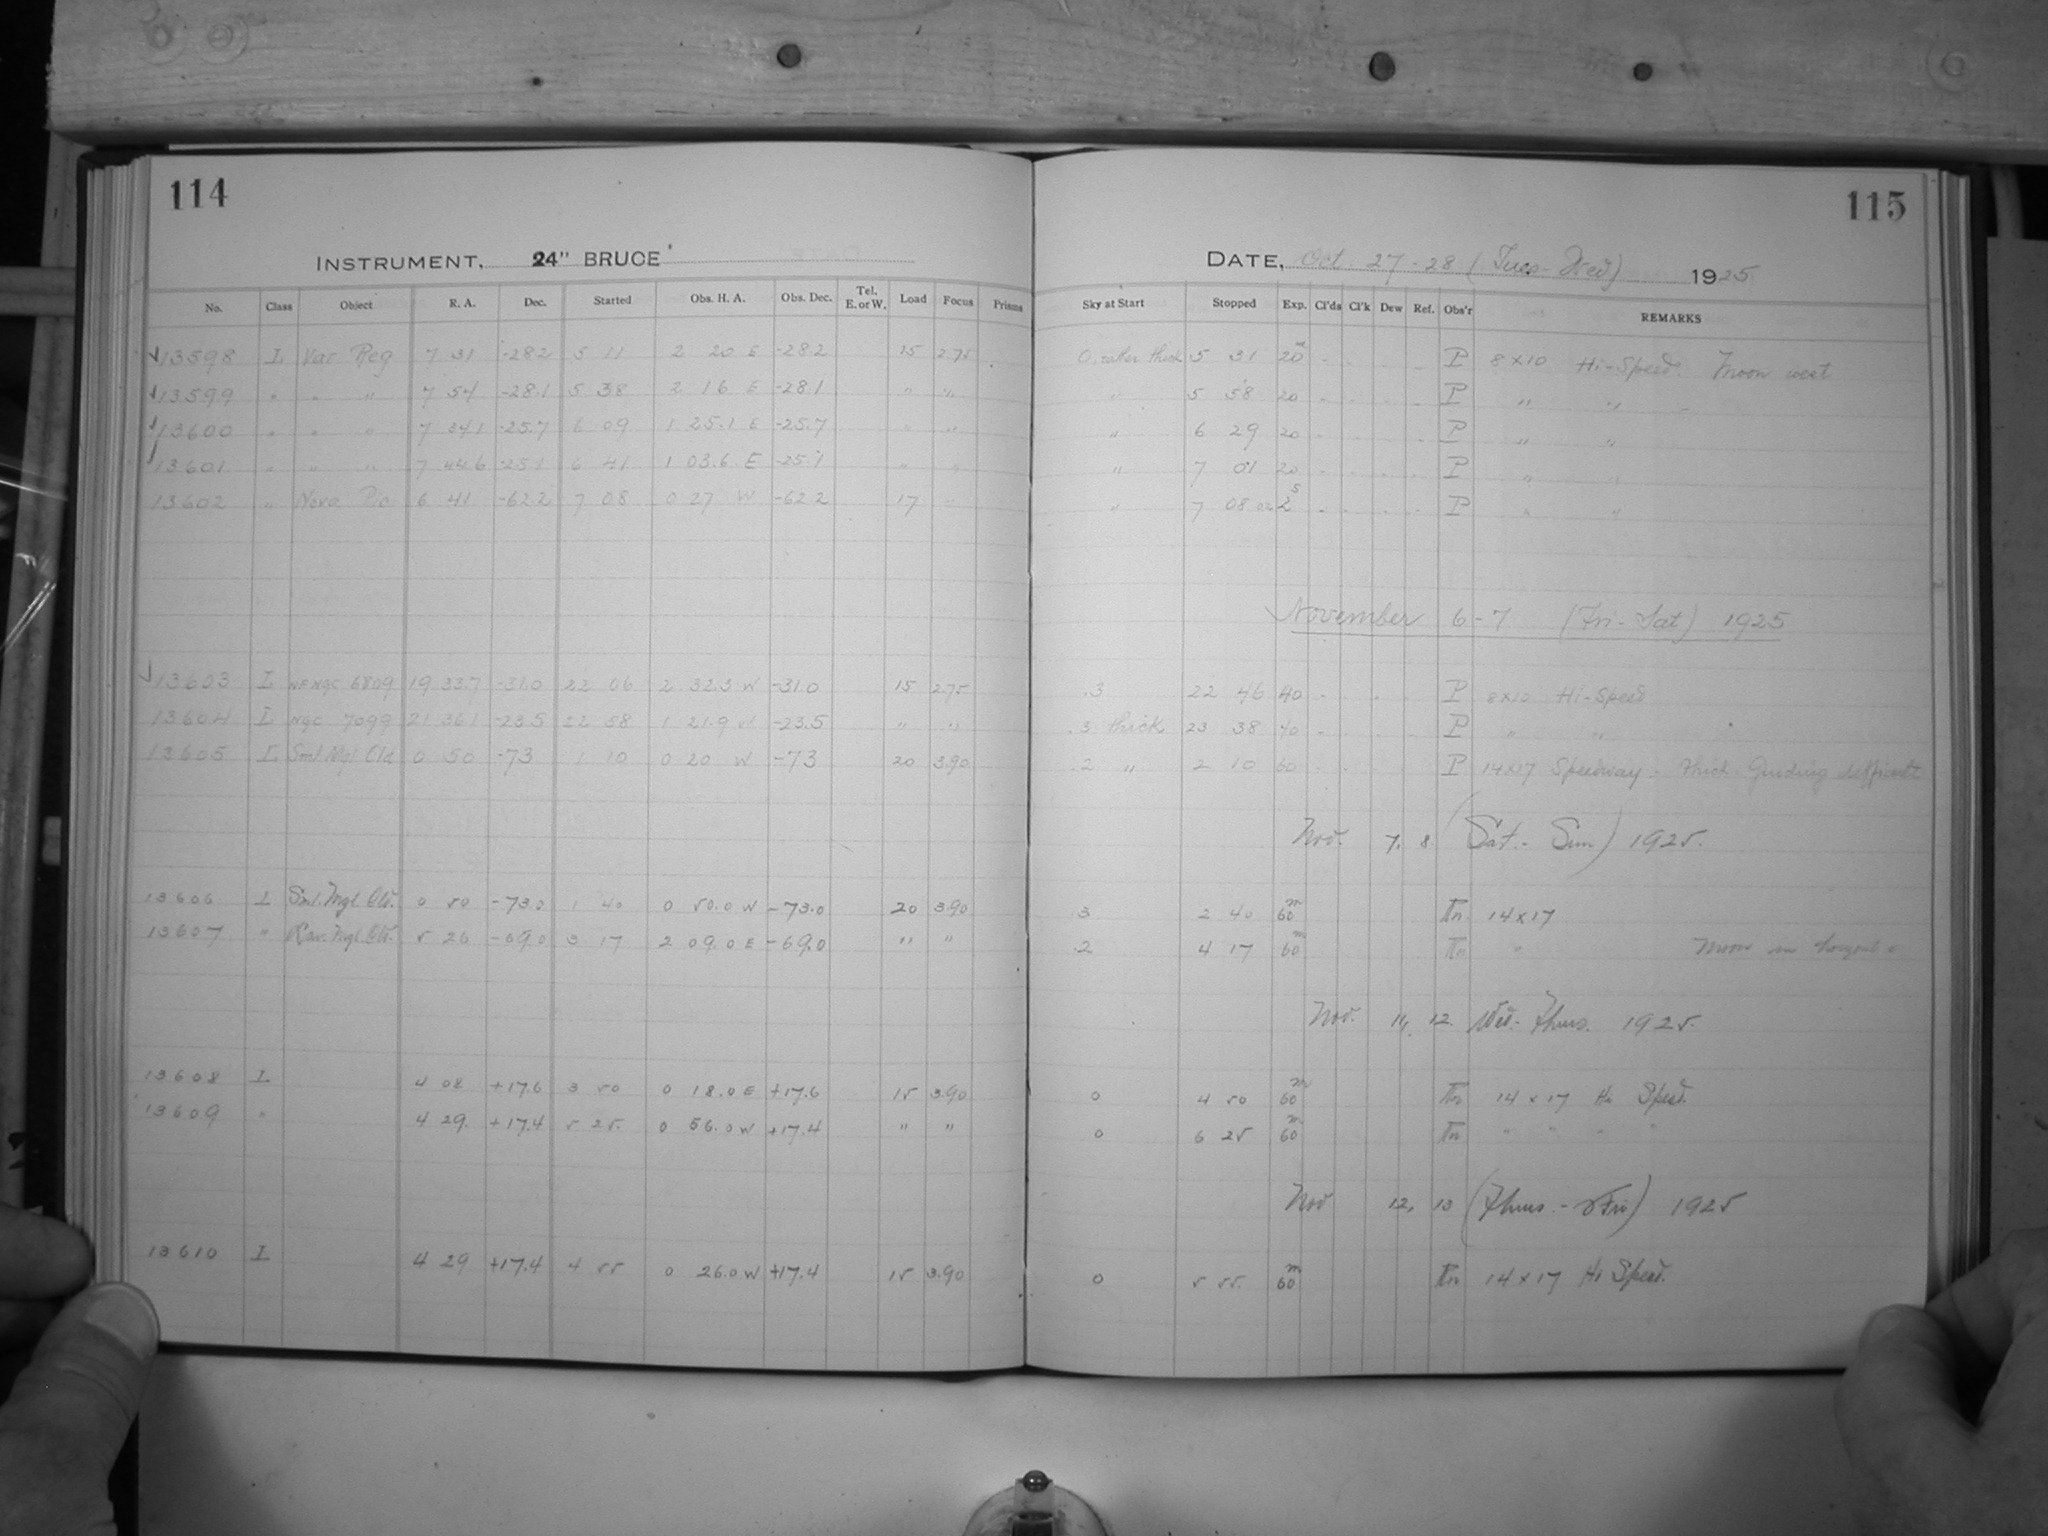 114
115
INSTRUMENT, 24" BRUCE
DATE, Oct. 27-28 (Tues-Wed) 1925
No. Class Object R. A. Dec. Started Obs. H. A. Obs. Dec. Tel. E. or W. Load Focus Prisms Sky at Start Stopped Exp. Cl'ds Cl'k Dew Ref. Obs'r REMARKS
13598 I Var Reg 7 31 -28.2 5 11 2 20 E -28.2 15 2.75 0. rather thick 5 31 20m P 8x10 Hi-Speed. Moon west
13599 " " " 7 54 -28.1 5 38 2 16 E -28.1 " " " 5 58 20 P " "
13600 " " " 7 34.1 -25.7 6 09 1 25.1 E -25.7 " " " 6 29 20 P " "
13601 " " " 7 44.6 -25.1 6 41 1 03.6 E -25.1 " " " 7 01 20 P " "
13602 " Nova Pic 6 41 -62.2 7 08 0 27 W -62.2 17 " " 7 08 02 2s P " "
November 6-7 (Fri-Sat) 1925
13603 I NGC 6809 19 33.7 -31.0 22 06 2 32.3 W -31.0 15 2.75 .3 22 46 40 P 8x10 Hi-Speed
13604 I NGC 7099 21 36.1 -23.5 22 58 1 21.9 W -23.5 " " .3 thick 23 38 40 P " "
13605 I Sml. Mgl. Cld 0 50 -73 1 10 0 20 W -73 20 3.90 .2 " 2 10 60 P 14x17 Speedway - thick. Guiding difficult
Nov. 7, 8 (Sat.- Sun) 1925.
13606 I Sml. Mgl. Cld. 0 50 -73.0 1 40 0 50.0 W -73.0 20 3.90 .3 2 40 60m 14x17
13607 " Lar. Mgl. Cld. 5 26 -69.0 3 17 2 09.0 E -69.0 " " .2 4 17 60m " Moon
Nov. 11, 12. Wed.- Thurs. 1925.
13608 I 4 08 +17.6 3 50 0 18.0 E +17.6 15 3.90 0 4 50 60m 14 x 17 Hi Speed.
13609 " 4 29. +17.4 5 25. 0 56.0 W +17.4 " " 0 6 25 60m " " " "
Nov 12, 13 (Thurs.- Fri) 1925
13610 I 4 29 +17.4 4 55 0 26.0 W +17.4 15 3.90 0 5 55. 60m 14 x 17 Hi Speed.